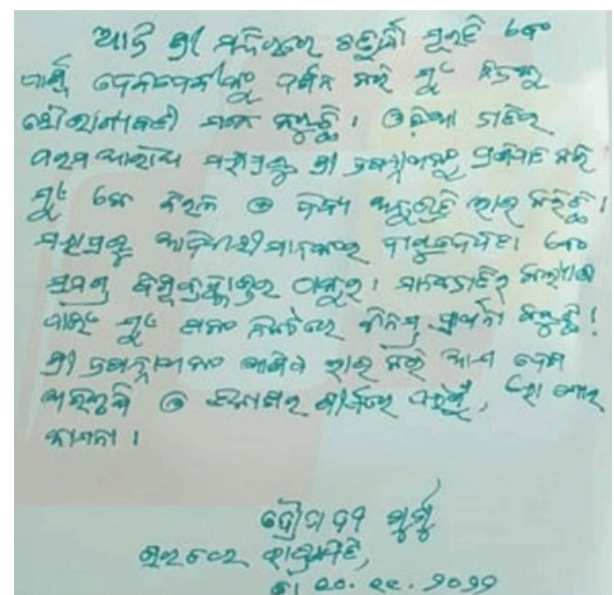 ଆଜି ଶ୍ରୀ ମନ୍ଦିରରେ ଚତୁର୍ଦ୍ଧା ମୂରତି ଏବଂ
ପାର୍ଶ୍ୱ ଦେବଦେବୀଙ୍କୁ ଦର୍ଶନ କରି ମୁଁ ନିଜକୁ
ସୌଭାଗ୍ୟବତୀ ମନେ କରୁଛି । ଓଡ଼ିଆ ଜାତିର
ପରମ ଆରାଧ୍ୟ ମହାପ୍ରଭୁ ଶ୍ରୀ ଜଗନ୍ନାଥଙ୍କୁ ପ୍ରଣିପାତ କରି
ମୁଁ ଏକ ବିରଳ ଓ ଦିବ୍ୟ ଅନୁଭୂତି ଲାଭ କରିଛି ।
ମହାପ୍ରଭୁ ଆଦିବାସୀମାନଙ୍କର ଦାରୁଦେବତା ଏବଂ
ସମଗ୍ର ବିଶ୍ୱବ୍ରହ୍ମାଣ୍ଡର ଠାକୁର । ମାନବଜାତିର କଲ୍ୟାଣ
ପାଇଁ ମୁଁ ତାଙ୍କ ନିକଟରେ ବିନମ୍ର ପ୍ରାର୍ଥନା କରୁଛି !
ଶ୍ରୀ ଜଗନ୍ନାଥଙ୍କ ଆଶିଷ ଲାଭ କରି ଆମ ଦେଶ
ଅଭିବୃଦ୍ଧି ଓ ଶୀର୍ଷରେ ପହଞ୍ଚୁ, ଏହା ମୋର
କାମନା ।
ଦ୍ରୌପଦୀ ମୁର୍ମୁ
ଭାରତର ରାଷ୍ଟ୍ରପତି,
ତା ୧୦.୧୧.୨୦୨୨